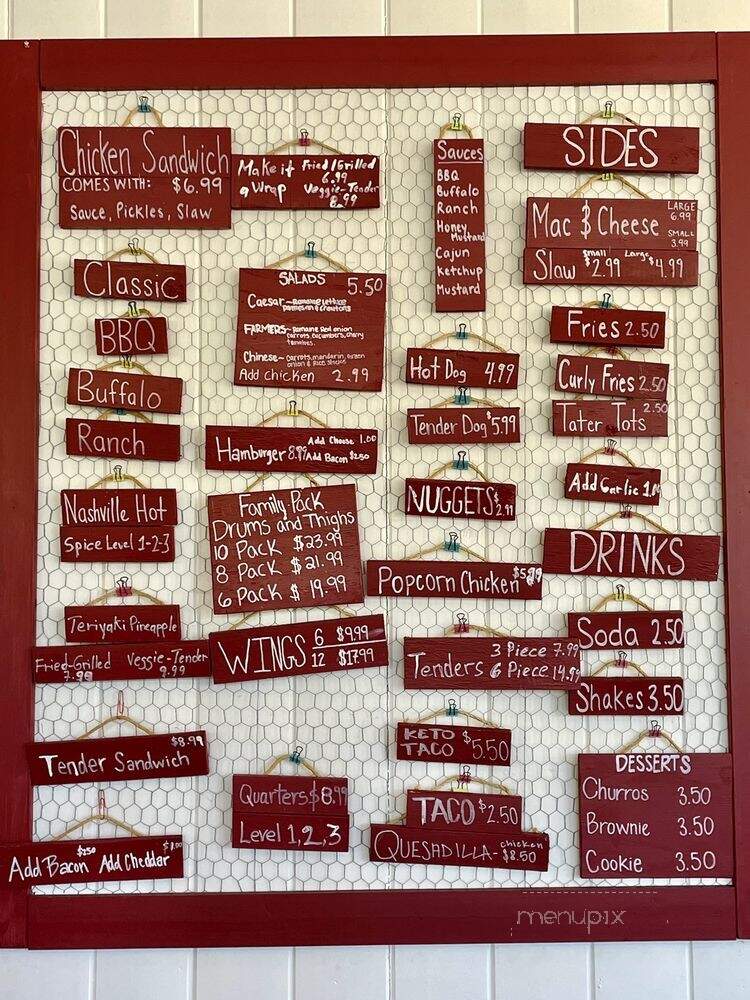 Chicken Sandwich
COMES WITH: $6.99
Sauce, Pickles, Slaw
Classic
BBQ
Buffalo
Ranch
Nashville Hot
Spice Level 1-2-3
Teriyaki Pineapple
Fried-Grilled Veggie-Tender
7.99 8.99
$8.99
Tender Sandwich
$2.50 $1.00
Add Bacon Add Cheddar
Make it Fried/Grilled
6.99
a Wrap Veggie-Tender
8.99
SALADS 5.50
Caesar~Romaine lettuce
parmesan & croutons
FARMERS~Romaine Red onion
carrots, cucumbers, cherry
tomatoes.
Chinese~carrots, mandarin, green
onion & rice sticks
Add chicken 2.99
Hamburger 8.99 Add Cheese 1.00
Add Bacon $2.50
Family Pack
Drums and Thighs
10 Pack $23.99
8 Pack $21.99
6 Pack $19.99
WINGS 6 $9.99
12 $17.99
Quarters $8.99
Level 1,2,3
Sauces
BBQ
Buffalo
Ranch
Honey
Mustard
Cajun
Ketchup
Mustard
Hot Dog 4.99
Tender Dog $5.99
NUGGETS $2.99
Popcorn Chicken $5.99
Tenders 3 Piece 7.99
6 Piece 14.99
KETO
TACO $5.50
TACO $2.50
QUESADILLA- chicken
$8.50
SIDES
Mac & Cheese LARGE
6.99
SMALL
3.99
Slaw Small $2.99 Large $4.99
Fries 2.50
Curly Fries 2.50
Tater Tots 2.50
Add Garlic
DRINKS
Soda 2.50
Shakes 3.50
DESSERTS
Churros 3.50
Brownie 3.50
Cookie 3.50
menupix